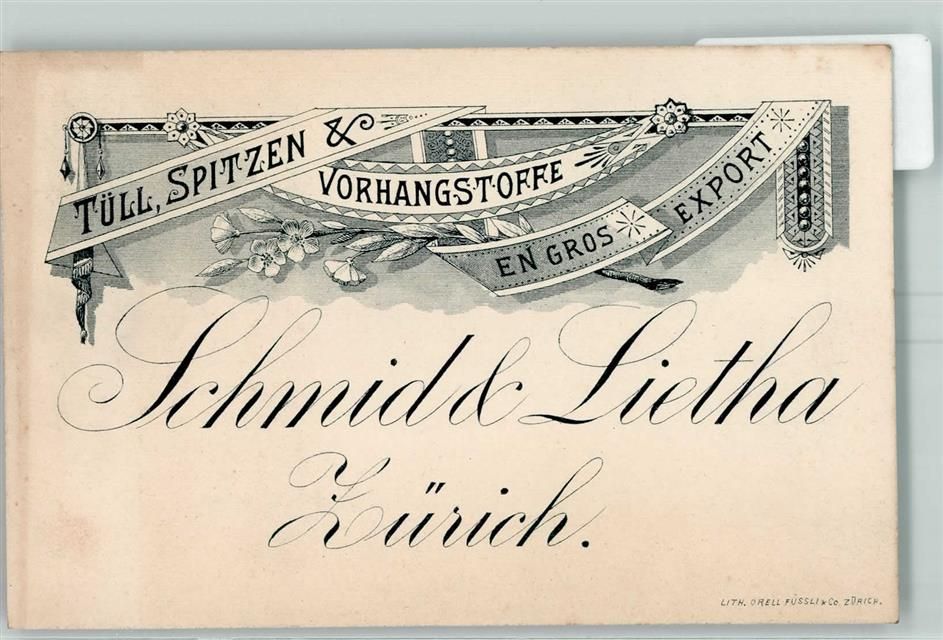 TÜLL, SPITZEN &
VORHANGSTOFFE
EN GROS
EXPORT
Schmid & Lietha
Zürich.
LITH. ORELL FÜSSLI & Co. ZÜRICH.